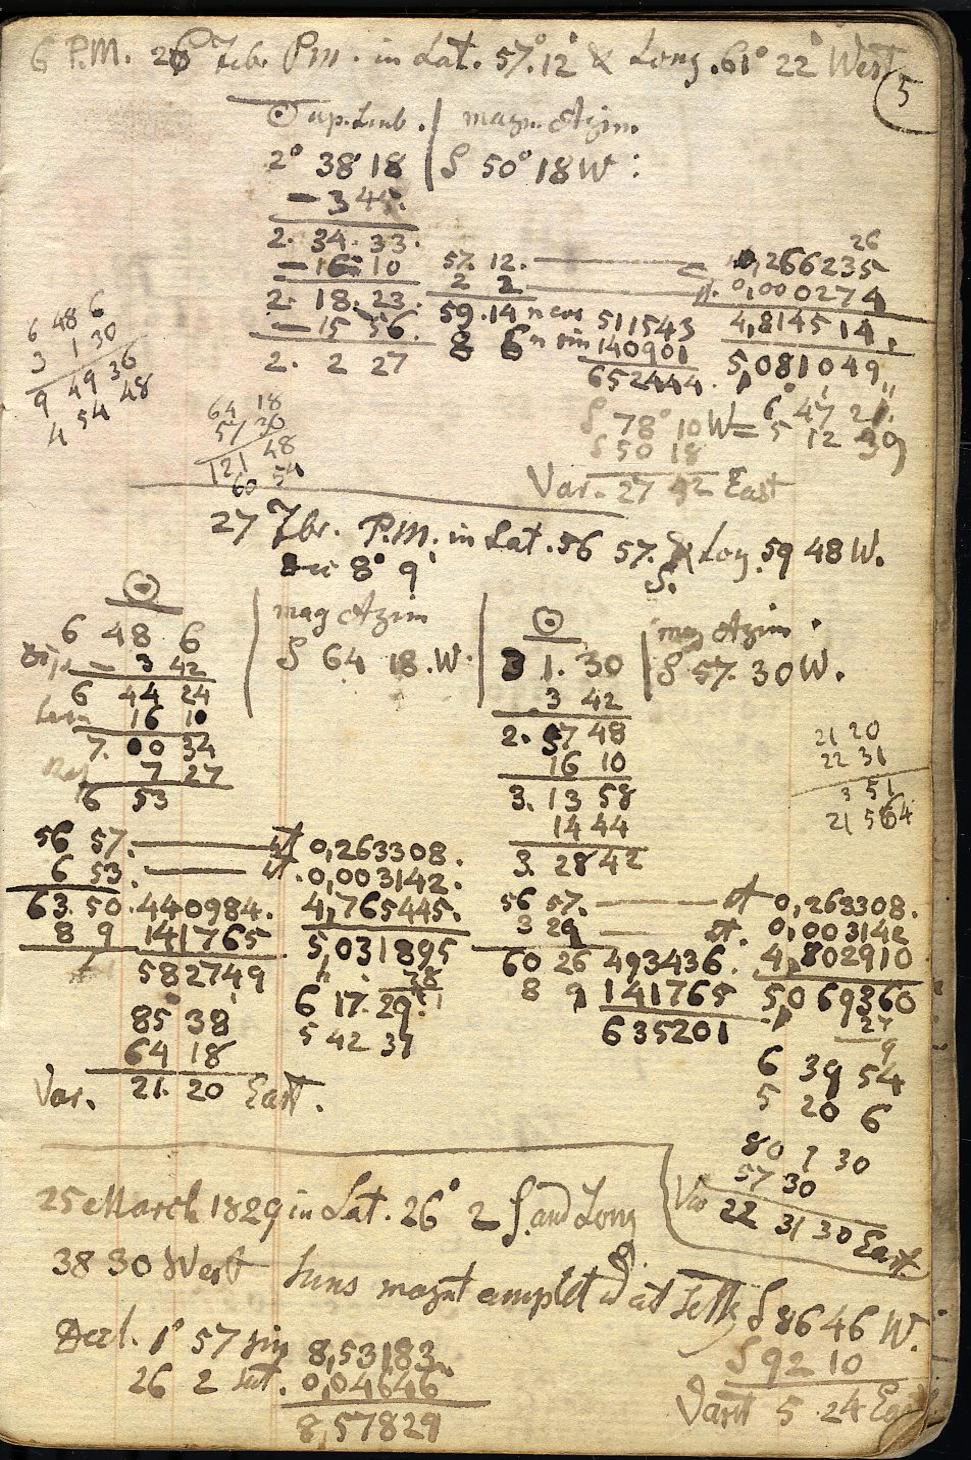 6 P.M. 26 Febr. P.m. in Lat. 57° 12' & Long. 61° 22' West
5
☉ up. Limb. | magn. Azim.
2° 38' 18 | S 50° 18 W:
— 3 45.
2. 34. 33.
— 16 10
2. 18. 23.
— 15 56.
2. 2 27
57. 12. ——— c 0,266235
26
2 2 ——— 0,000274
59. 14 n cos 511543 4,814514,
8 6 n sin 140901 5,081049
652444.
6 48 6
3 1 30
9 49 36
4 54 48
64 18
57 30
121 48
60 54
6° 47' 21"
S 78° 10 W = 5 12 39
S 50 18
Var. 27 52 East
27 Febr. P.M. in Lat. 56 57. & Long. 59 48 W.
Dec 8° 9' S.
☉ | mag Azim | ☉ | mag Azim.
6 48 6 | S 64 18. W. | 3 1. 30 | S 57. 30 W.
Dip — 3 42
6 44 24
16 10
7. 00 34
Ref 7 27
6 53
3 42
2. 57 48
16 10
3. 13 58
14 44
3. 28 42
21 20
22 31
3 51
21 56
56 57. ——— 0,263308.
6 53. ——— 0,003142.
63. 50. 440984. 4,765445.
8 9 141765 5,031895
582749
38
6 17. 29.
5 42 31
85° 38'
64 18
Var. 21. 20 East.
56 57. ——— 0,263308.
3 29 ——— 0,003142
60 26 493436. 4,802910
8 9 141765 5,069360
635201
27
9
6 39 54
5 20 6
80 1 30
57 30
Var 22 31 30 East.
25 March 1829 in Lat. 26° 2 S. and Long
38 30 West Suns magnt amplitd at Settg S 86 46 W.
Decl. 1° 57 sin 8,53183 S 92 10
26 2 0,04646 Varit 5. 24 East
8,57829